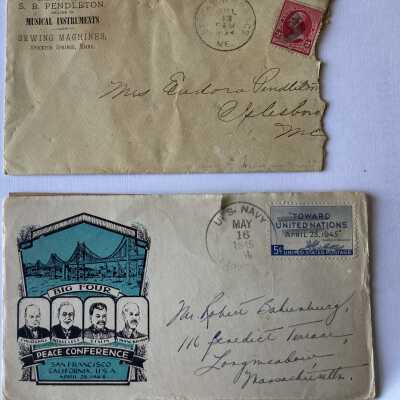 S. B. PENDLETON,
MUSICAL INSTRUMENTS
SEWING MACHINES,
ME.
Mrs Eudora Pendleton
Islesboro
Me
U.S. NAVY
MAY
16
1945
TOWARD
UNITED NATIONS
APRIL 25, 1945
5¢ UNITED STATES POSTAGE
BIG FOUR
CHURCHILL ROOSEVELT STALIN
PEACE CONFERENCE
SAN FRANCISCO
CALIFORNIA, U.S.A.
APRIL 25, 1945
Mr. Robert
116 Benedict Terrace,
Longmeadow
Massachusetts.